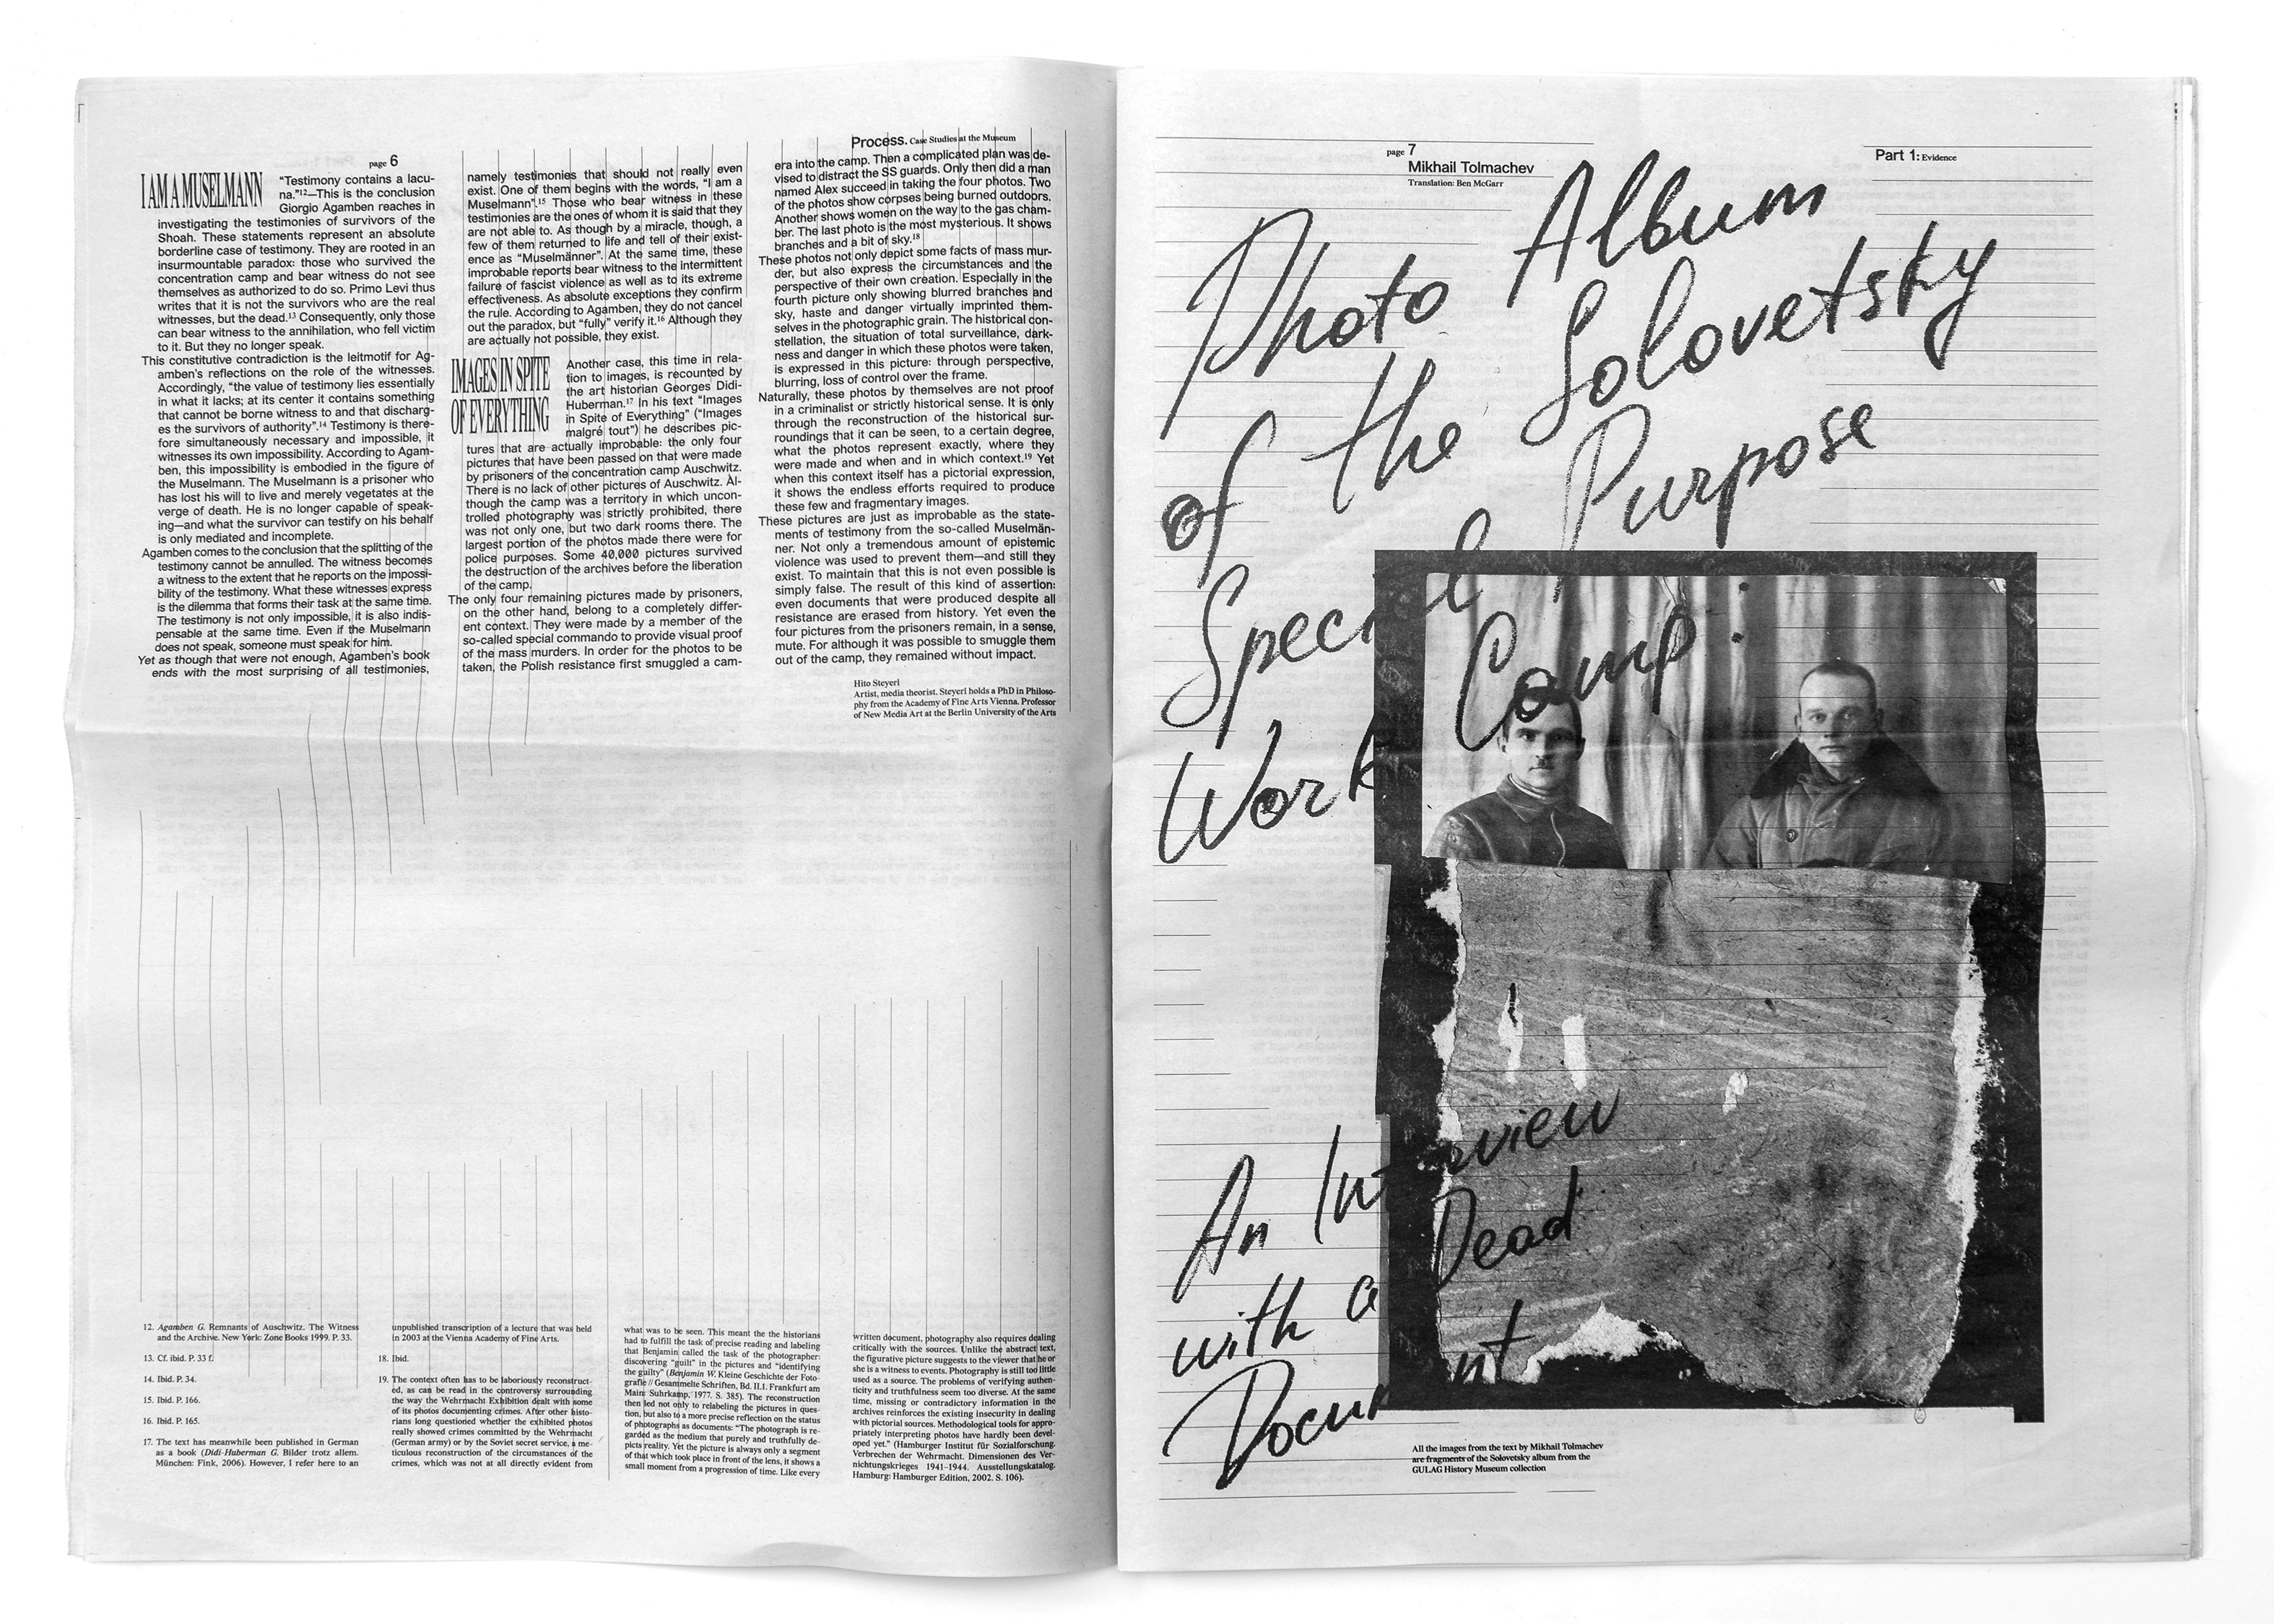 page 6
I AM A MUSELMANN
“Testimony contains a lacu-
na.”¹²—This is the conclusion
Giorgio Agamben reaches in
investigating the testimonies of survivors of the
Shoah. These statements represent an absolute
borderline case of testimony. They are rooted in an
insurmountable paradox: those who survived the
concentration camp and bear witness do not see
themselves as authorized to do so. Primo Levi thus
writes that it is not the survivors who are the real
witnesses, but the dead.¹³ Consequently, only those
can bear witness to the annihilation, who fell victim
to it. But they no longer speak.
This constitutive contradiction is the leitmotif for Ag-
amben’s reflections on the role of the witnesses.
Accordingly, “the value of testimony lies essentially
in what it lacks; at its center it contains something
that cannot be borne witness to and that discharg-
es the survivors of authority”.¹⁴ Testimony is there-
fore simultaneously necessary and impossible, it
witnesses its own impossibility. According to Agam-
ben, this impossibility is embodied in the figure of
the Muselmann. The Muselmann is a prisoner who
has lost his will to live and merely vegetates at the
verge of death. He is no longer capable of speak-
ing—and what the survivor can testify on his behalf
is only mediated and incomplete.
Agamben comes to the conclusion that the splitting of the
testimony cannot be annulled. The witness becomes
a witness to the extent that he reports on the impossi-
bility of the testimony. What these witnesses express
is the dilemma that forms their task at the same time.
The testimony is not only impossible, it is also indis-
pensable at the same time. Even if the Muselmann
does not speak, someone must speak for him.
Yet as though that were not enough, Agamben’s book
ends with the most surprising of all testimonies,
namely testimonies that should not really even
exist. One of them begins with the words, “I am a
Muselmann”.¹⁵ Those who bear witness in these
testimonies are the ones of whom it is said that they
are not able to. As though by a miracle, though, a
few of them returned to life and tell of their exist-
ence as “Muselmänner”. At the same time, these
improbable reports bear witness to the intermittent
failure of fascist violence as well as to its extreme
effectiveness. As absolute exceptions they confirm
the rule. According to Agamben, they do not cancel
out the paradox, but “fully” verify it.¹⁶ Although they
are actually not possible, they exist.
IMAGES IN SPITE
OF EVERYTHING
Another case, this time in rela-
tion to images, is recounted by
the art historian Georges Didi-
Huberman.¹⁷ In his text “Images
in Spite of Everything” (“Images
malgré tout”) he describes pic-
tures that are actually improbable: the only four
pictures that have been passed on that were made
by prisoners of the concentration camp Auschwitz.
There is no lack of other pictures of Auschwitz. Al-
though the camp was a territory in which uncon-
trolled photography was strictly prohibited, there
was not only one, but two dark rooms there. The
largest portion of the photos made there were for
police purposes. Some 40,000 pictures survived
the destruction of the archives before the liberation
of the camp.
The only four remaining pictures made by prisoners,
on the other hand, belong to a completely differ-
ent context. They were made by a member of the
so-called special commando to provide visual proof
of the mass murders. In order for the photos to be
taken, the Polish resistance first smuggled a cam-
Process. Case Studies at the Museum
era into the camp. Then a complicated plan was de-
vised to distract the SS guards. Only then did a man
named Alex succeed in taking the four photos. Two
of the photos show corpses being burned outdoors.
Another shows women on the way to the gas cham-
ber. The last photo is the most mysterious. It shows
branches and a bit of sky.¹⁸
These photos not only depict some facts of mass mur-
der, but also express the circumstances and the
perspective of their own creation. Especially in the
fourth picture only showing blurred branches and
sky, haste and danger virtually imprinted them-
selves in the photographic grain. The historical con-
stellation, the situation of total surveillance, dark-
ness and danger in which these photos were taken,
is expressed in this picture: through perspective,
blurring, loss of control over the frame.
Naturally, these photos by themselves are not proof
in a criminalist or strictly historical sense. It is only
through the reconstruction of the historical sur-
roundings that it can be seen, to a certain degree,
what the photos represent exactly, where they
were made and when and in which context.¹⁹ Yet
when this context itself has a pictorial expression,
it shows the endless efforts required to produce
these few and fragmentary images.
These pictures are just as improbable as the state-
ments of testimony from the so-called Muselmän-
ner. Not only a tremendous amount of epistemic
violence was used to prevent them—and still they
exist. To maintain that this is not even possible is
simply false. The result of this kind of assertion:
even documents that were produced despite all
resistance are erased from history. Yet even the
four pictures from the prisoners remain, in a sense,
mute. For although it was possible to smuggle them
out of the camp, they remained without impact.
Hito Steyerl
Artist, media theorist. Steyerl holds a PhD in Philoso-
phy from the Academy of Fine Arts Vienna. Professor
of New Media Art at the Berlin University of the Arts
12. Agamben G. Remnants of Auschwitz. The Witness
and the Archive. New York: Zone Books 1999. P. 33.
13. Cf. ibid. P. 33 f.
14. Ibid. P. 34.
15. Ibid. P. 166.
16. Ibid. P. 165.
17. The text has meanwhile been published in German
as a book (Didi-Huberman G. Bilder trotz allem.
München: Fink, 2006). However, I refer here to an
unpublished transcription of a lecture that was held
in 2003 at the Vienna Academy of Fine Arts.
18. Ibid.
19. The context often has to be laboriously reconstruct-
ed, as can be read in the controversy surrounding
the way the Wehrmacht Exhibition dealt with some
of its photos documenting crimes. After other histo-
rians long questioned whether the exhibited photos
really showed crimes committed by the Wehrmacht
(German army) or by the Soviet secret service, a me-
ticulous reconstruction of the circumstances of the
crimes, which was not at all directly evident from
what was to be seen. This meant the the historians
had to fulfill the task of precise reading and labeling
that Benjamin called the task of the photographer:
discovering “guilt” in the pictures and “identifying
the guilty” (Benjamin W. Kleine Geschichte der Foto-
grafie // Gesammelte Schriften, Bd. II.1. Frankfurt am
Main: Suhrkamp, 1977. S. 385). The reconstruction
then led not only to relabeling the pictures in ques-
tion, but also to a more precise reflection on the status
of photographs as documents: “The photograph is re-
garded as the medium that purely and truthfully de-
picts reality. Yet the picture is always only a segment
of that which took place in front of the lens, it shows a
small moment from a progression of time. Like every
written document, photography also requires dealing
critically with the sources. Unlike the abstract text,
the figurative picture suggests to the viewer that he or
she is a witness to events. Photography is still too little
used as a source. The problems of verifying authen-
ticity and truthfulness seem too diverse. At the same
time, missing or contradictory information in the
archives reinforces the existing insecurity in dealing
with pictorial sources. Methodological tools for appro-
priately interpreting photos have hardly been devel-
oped yet.” (Hamburger Institut für Sozialforschung.
Verbrechen der Wehrmacht. Dimensionen des Ver-
nichtungskrieges 1941–1944. Ausstellungskatalog.
Hamburg: Hamburger Edition, 2002. S. 106).
page 7
Mikhail Tolmachev
Translation: Ben McGarr
Part 1: Evidence
Photo Album
of the Solovetsky
Special Purpose
Work Camp:
An Interview
with a Dead
Document
All the images from the text by Mikhail Tolmachev
are fragments of the Solovetsky album from the
GULAG History Museum collection